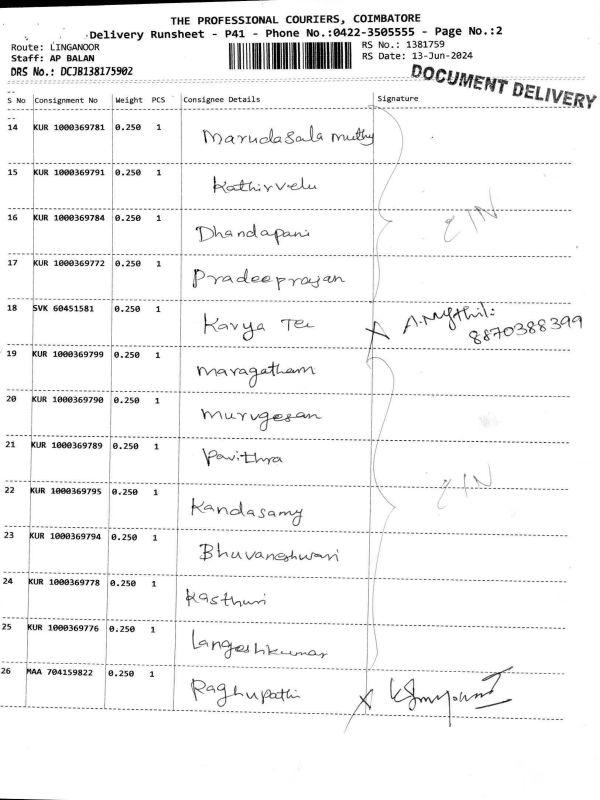 THE PROFESSIONAL COURIERS, COIMBATORE
Delivery Runsheet - P41 - Phone No.:0422-3505555 - Page No.:2
Route: LINGANOOR
RS No.: 1381759
Staff: AP BALAN
RS Date: 13-Jun-2024
DRS No.: DCJB138175902
DOCUMENT DELIVERY
S No Consignment No Weight PCS Consignee Details Signature
14 KUR 1000369781 0.250 1 Marudasala muthy
15 KUR 1000369791 0.250 1 Kathirvelu
16 KUR 1000369784 0.250 1 Dhandapani
17 KUR 1000369772 0.250 1 Pradeeprajan
18 SVK 60451581 0.250 1 Kavya Tex X A.Mythili 8870388399
19 KUR 1000369799 0.250 1 maragatham
20 KUR 1000369790 0.250 1 murugesan
21 KUR 1000369789 0.250 1 Pavithra
22 KUR 1000369795 0.250 1 Kandasamy
23 KUR 1000369794 0.250 1 Bhuvaneshwari
24 KUR 1000369778 0.250 1 Kasthuri
25 KUR 1000369776 0.250 1 Langeshkumar
26 MAA 704159822 0.250 1 Raghupathi X